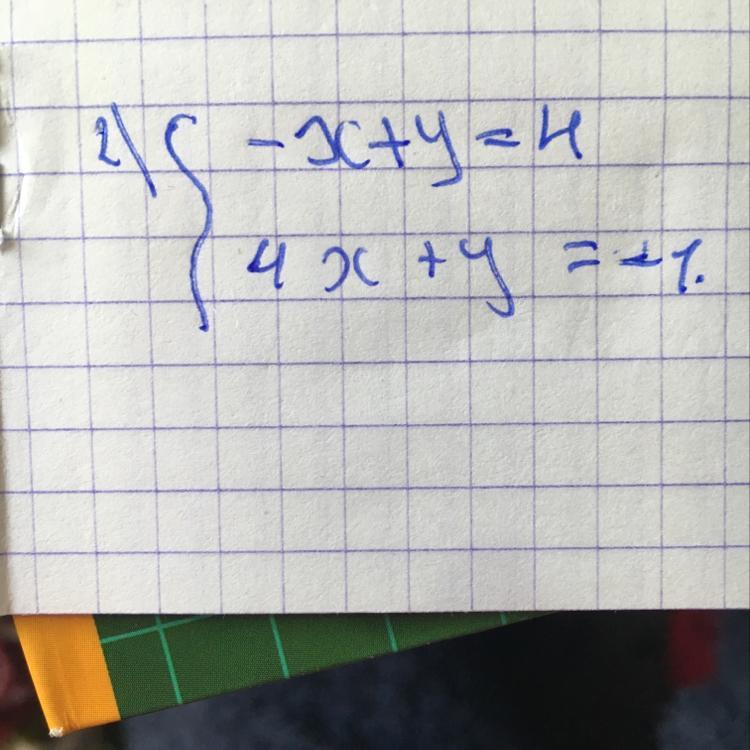 2) { -x+y=4
4x+y = -1.